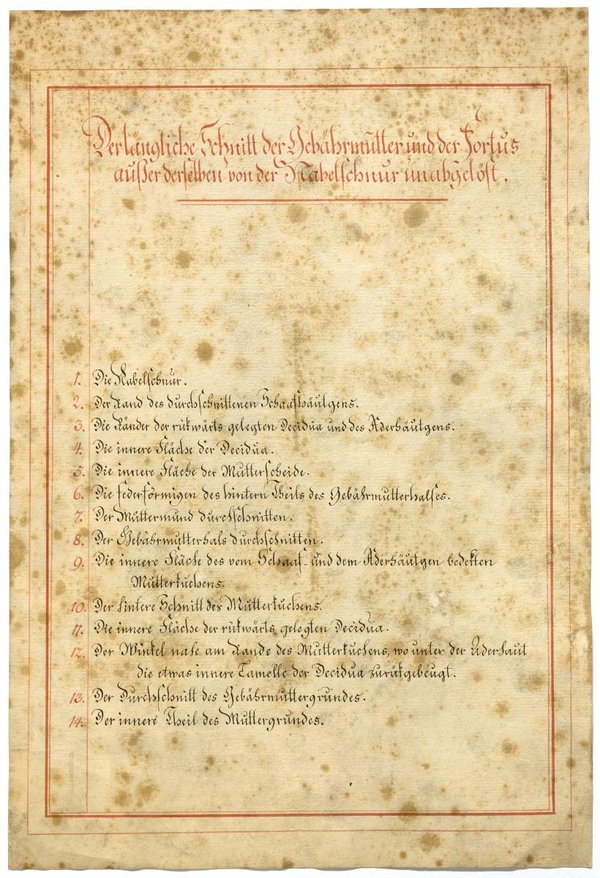 Der längliche Schnitt der Gebährmutter und der Foetus
außer derselben von der Nabelschnur unabgelöst.
1. Die Nabelschnur.
2. Der Rand des durchschnittenen Schaafhäutgens.
3. Die Ränder der rükwärts gelegten Decidua und des Aderhäutgens.
4. Die innere Fläche der Decidua.
5. Die innere Fläche der Mutterscheide.
6. Die federförmigen des hintern Theils des Gebährmutterhalses.
7. Der Muttermund durchschnitten.
8. Der Gebährmutterhals durchschnitten.
9. Die innere Fläche des vom Schaaf- und dem Aderhäutgen bedekten
Mutterkuchens.
10. Der hintere Schnitt des Mutterkuchens.
11. Die innere Fläche der rükwärts gelegten Decidua.
12. Der Winkel nahe am Rande des Mutterkuchens, wo unter der Aderhaut
die etwas innere Lamelle der Decidua zurükgebeugt.
13. Der Durchschnitt des Gebährmuttergrundes.
14. Der innere Theil des Muttergrundes.